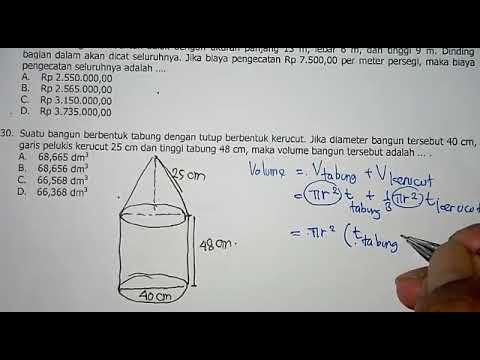 panjang 15 m, lebar 6 m, dan tinggi 9 m. Dinding
bagian dalam akan dicat seluruhnya. Jika biaya pengecatan Rp 7.500,00 per meter persegi, maka biaya
pengecatan seluruhnya adalah ....
A. Rp 2.550.000,00
B. Rp 2.565.000,00
C. Rp 3.150.000,00
D. Rp 3.735.000,00
30. Suatu bangun berbentuk tabung dengan tutup berbentuk kerucut. Jika diameter bangun tersebut 40 cm,
garis pelukis kerucut 25 cm dan tinggi tabung 48 cm, maka volume bangun tersebut adalah ... .
A. 68,665 dm³
B. 68,656 dm³
C. 66,568 dm³
D. 66,368 dm³
25 cm
48 cm.
40 cm
Volume = V tabung + V kerucut
= πr² t tabung + 1/3 πr² t kerucut
= πr² ( t tabung